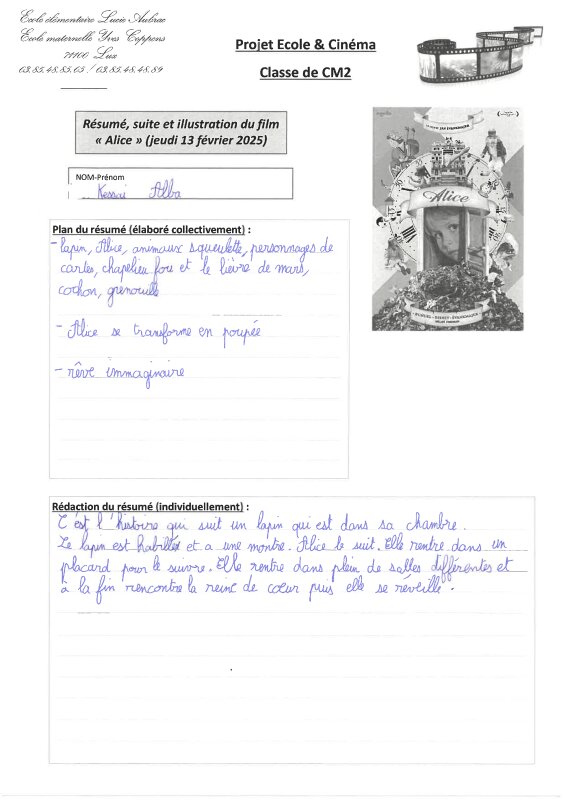 Ecole élémentaire Lucie Aubrac
Ecole maternelle Yves Coppens
71100 Lux
03.85.48.85.03 / 03.85.48.48.89
Projet Ecole & Cinéma
Classe de CM2
Résumé, suite et illustration du film
« Alice » (jeudi 13 février 2025)
NOM-Prénom
Kessai Alba
Alice
Plan du résumé (élaboré collectivement) :
- lapin, Alice, animaux squeulette, personnages de
cartes, chapelier fou et le lièvre de mars,
cochon, grenouille
- Alice se transforme en poupée
- rêve immaginaire
Rédaction du résumé (individuellement) :
C'est l'histoire qui suit un lapin qui est dans sa chambre.
Le lapin est habillés et a une montre. Alice le suit. Elle rentre dans un
placard pour le suivre. Elle rentre dans plein de salles différentes et
à la fin rencontre la reine de cœur puis elle se réveille.